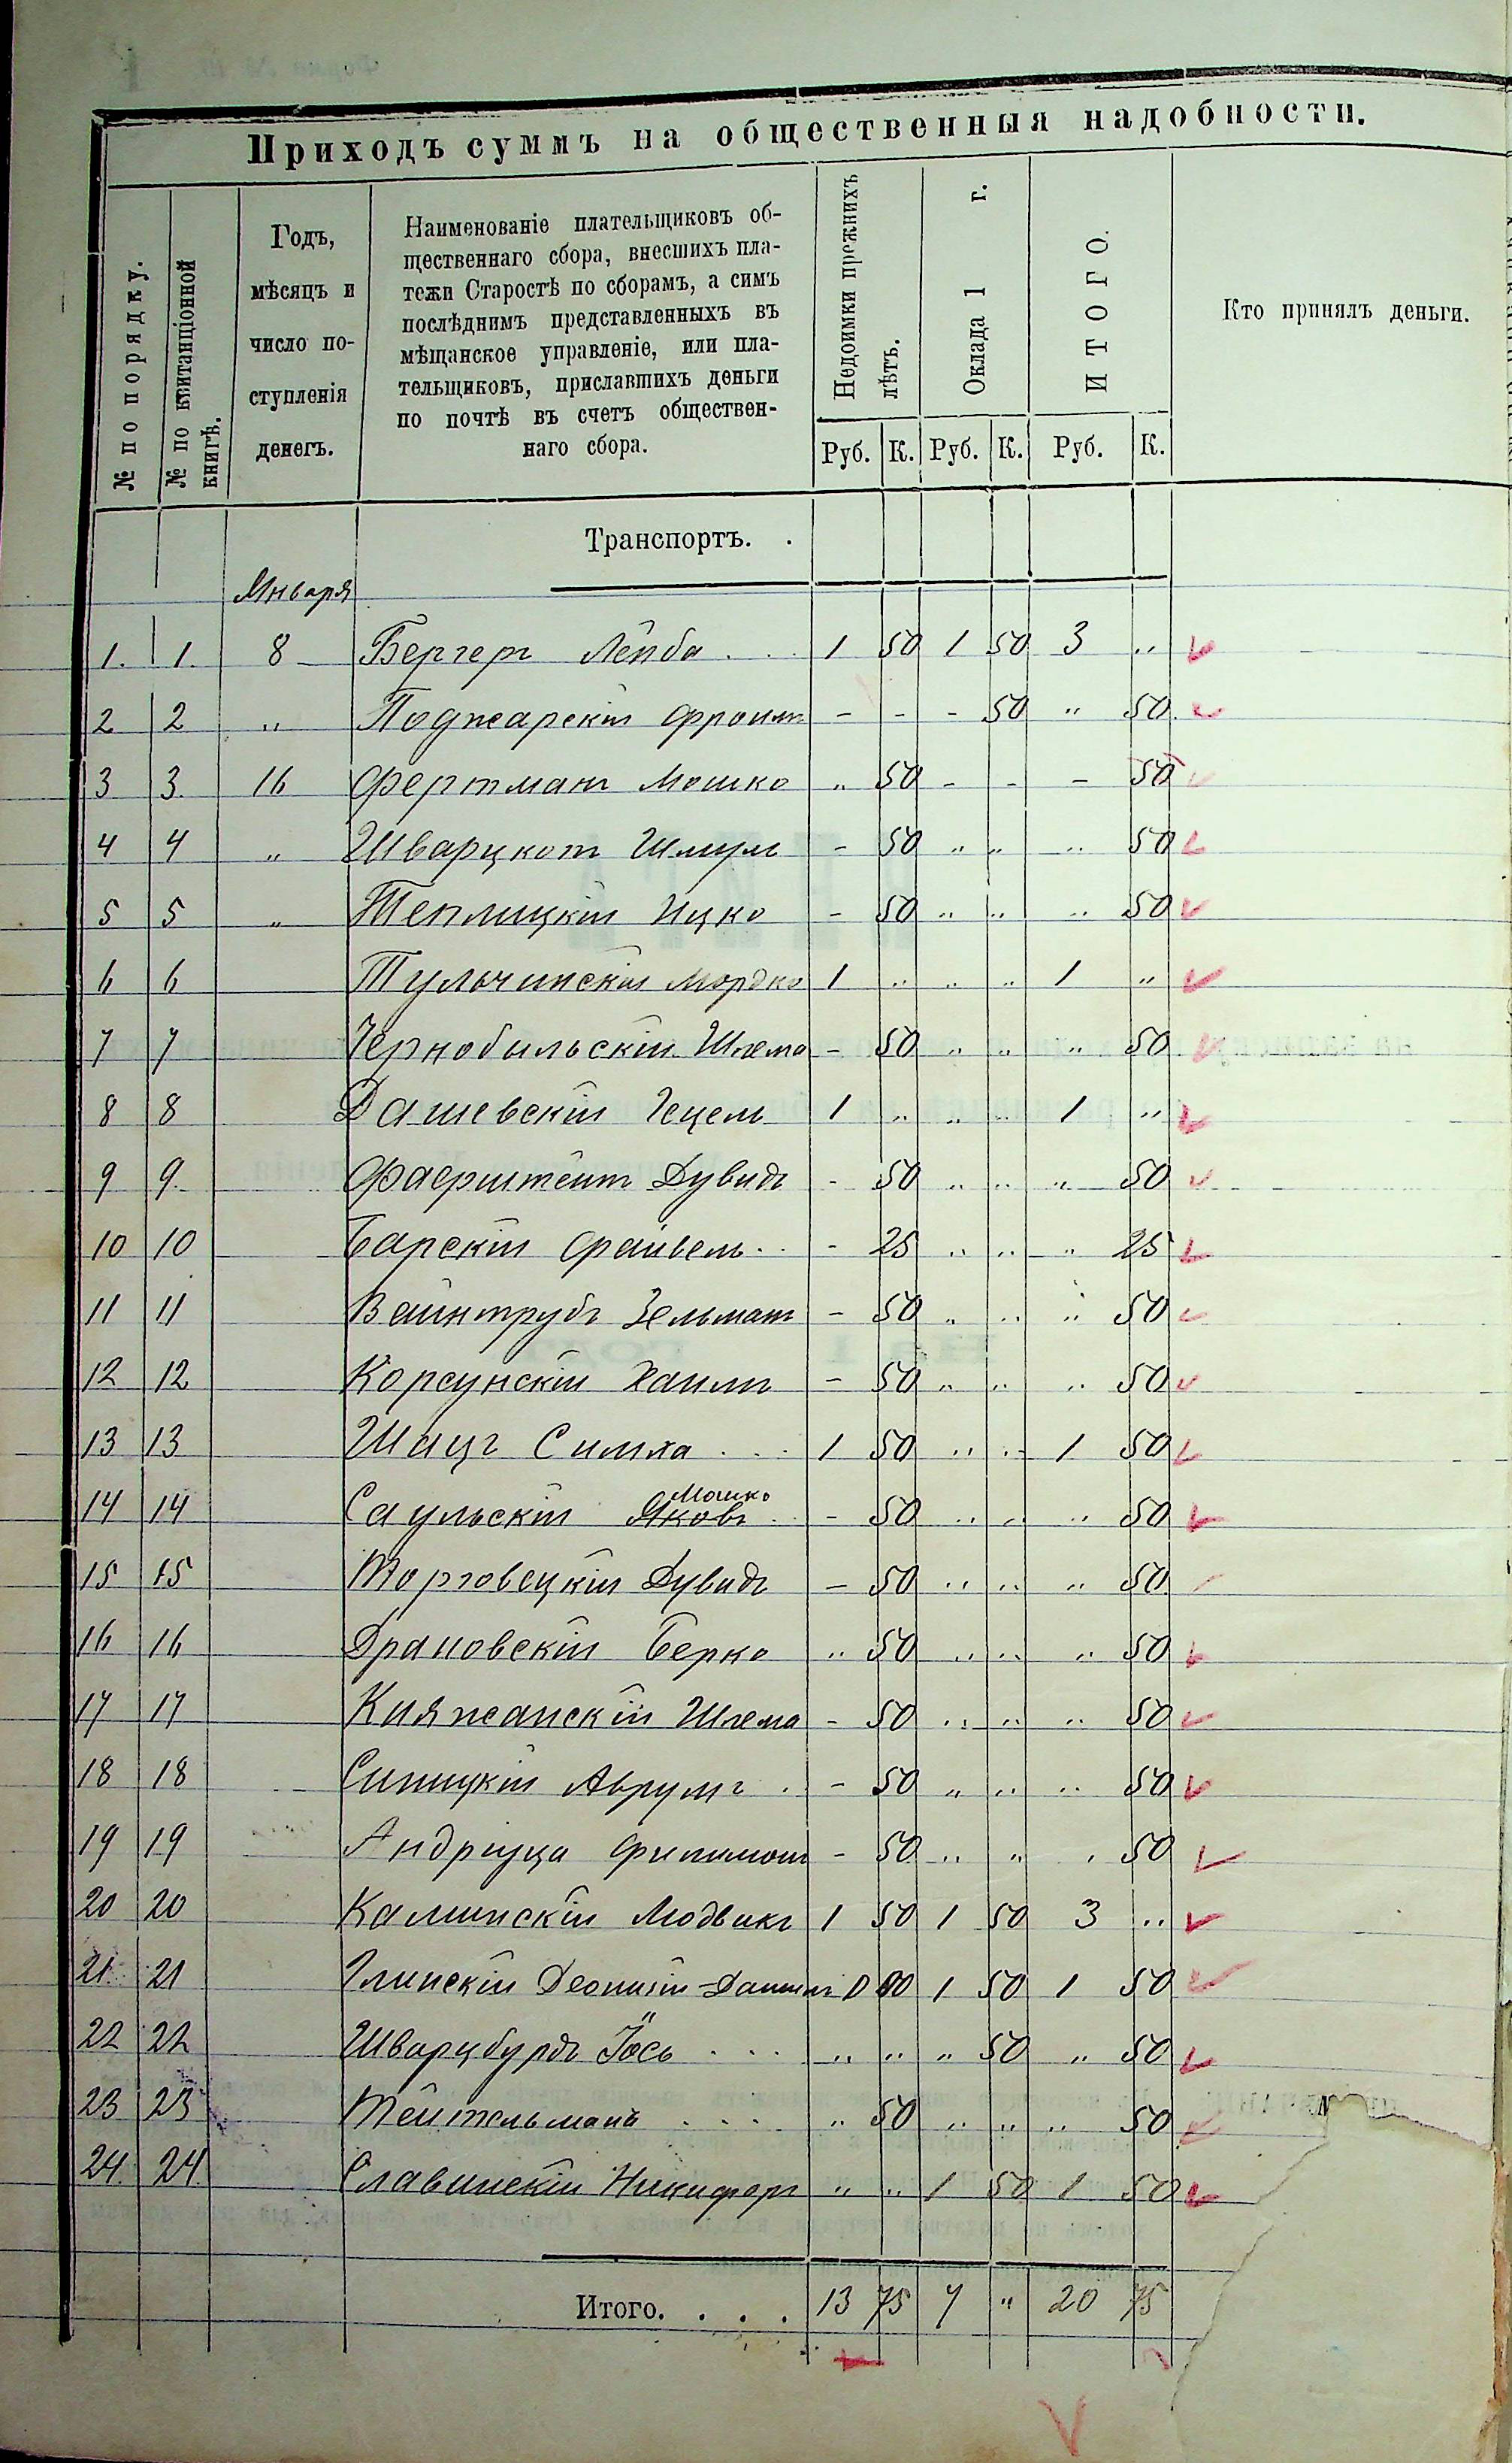 Приходъ суммъ на общественныя надобности.
№ по порядку.
№ по квитанціонной книгѣ.
Годъ,
мѣсяцъ и
число по-
ступленія
денегъ.
Наименованіе плательщиковъ об-
щественнаго сбора, внесшихъ пла-
тежи Старостѣ по сборамъ, а симъ
послѣднимъ представленныхъ въ
мѣщанское управленіе, или пла-
тельщиковъ, приславшихъ деньги
по почтѣ въ счетъ обществен-
наго сбора.
Недоимки прежнихъ лѣтъ.
Оклада 1 г.
ИТОГО.
Кто принялъ деньги.
Руб. К. Руб. К. Руб. К.
Транспортъ. .
Января
1. 1. 8 Бергеръ Лейба . . . 1 50 1 50 3 „
2 2 „ Поджарскій Фроимъ - - - 50 „ 50
3 3. 16 Фертманъ Мошко „ 50 - - - 50
4 4 „ Шварцкотъ Шмулъ - 50 „ „ „ 50
5 5 „ Теплицкій Ицко - 50 „ „ „ 50
6 6 Тульчинскій Мордко 1 „ „ „ 1 „
7 7 Чернобыльскій Шлема - 50 „ „ „ 50
8 8 Дашевскій Гецель 1 „ „ „ 1 „
9 9 Фаерштейнъ Дувидъ - 50 „ „ „ 50
10 10 Барскій Файвель . . - 25 „ „ „ 25
11 11 Вайнтрубъ Зельманъ - 50 „ „ „ 50
12 12 Корсунскій Хаимъ - 50 „ „ „ 50
13 13 Шацъ Симха . . . 1 50 „ „ 1 50
Мошко
14 14 Саульскій Яковъ . . - 50 „ „ „ 50
15 15 Торговецкій Дувидъ - 50 „ „ „ 50
16 16 Драновскій Берко „ 50 „ „ „ 50
17 17 Княжанскій Шлема - 50 „ „ „ 50
18 18 Синицкій Аврумъ . . - 50 „ „ „ 50
19 19 Андріуца Филимонъ - 50 „ „ „ 50
20 20 Калинскій Людвикъ 1 50 1 50 3 „
21 21 Глинскій Деонизій-Даніилъ 0 00 1 50 1 50
22 22 Шварцбурдъ Іось . . . „ „ „ 50 „ 50
23 23 Тейтельманъ . . . „ 50 „ „ „ 50
24 24 Славинскій Никифоръ „ „ 1 50 1 50
Итого. . . . 13 75 7 „ 20 75